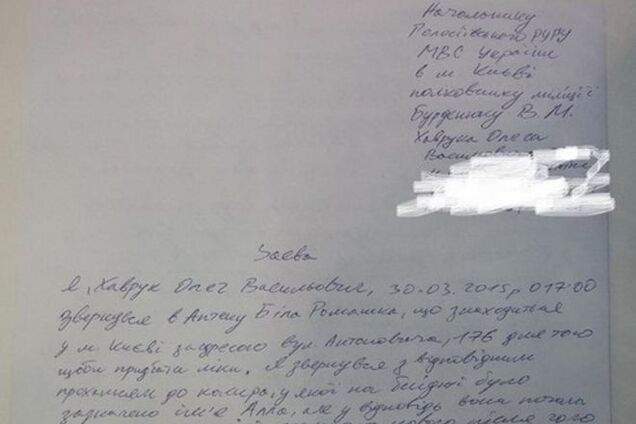 Начальнику
Голосіївського РУГУ
МВС України
в м. Києві
полковнику міліції
В. М.
Хаврука Олега
Заява
Я, Хаврук Олег Васильович, 30.03.2015р о 17:00
звернувся в Аптеку Біла Ромашка, що знаходиться
у м. Києві за адресою вул. Антоновича, 176 для того
щоби придбати ліки. Я звернувся з відповідним
проханням до касира, у якої на бейджі було
зазначено ім'я Алла, але у відповідь вона почала
після чого